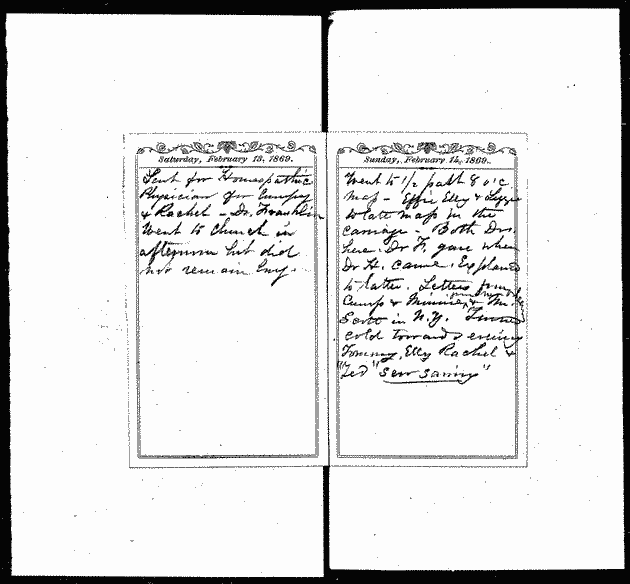 Saturday, February 13, 1869.
Sent for Homeopathic
Physician for
& Rachel - Dr. Franklin
Went to Church in
afternoon but did
not remain long.
Sunday, February 14, 1869.
Went to 1/2 past 8 o'c.
Mass - Effie Elly & Lizzie
to late mass in the
carriage - Both Drs.
here. Dr F. gone when
Dr H. came. Explained
to latter. Letters from
Cump & Minnie, & Mr.
Scott in N.Y. Turned
cold towards evening
Tommy, Elly Rachel &